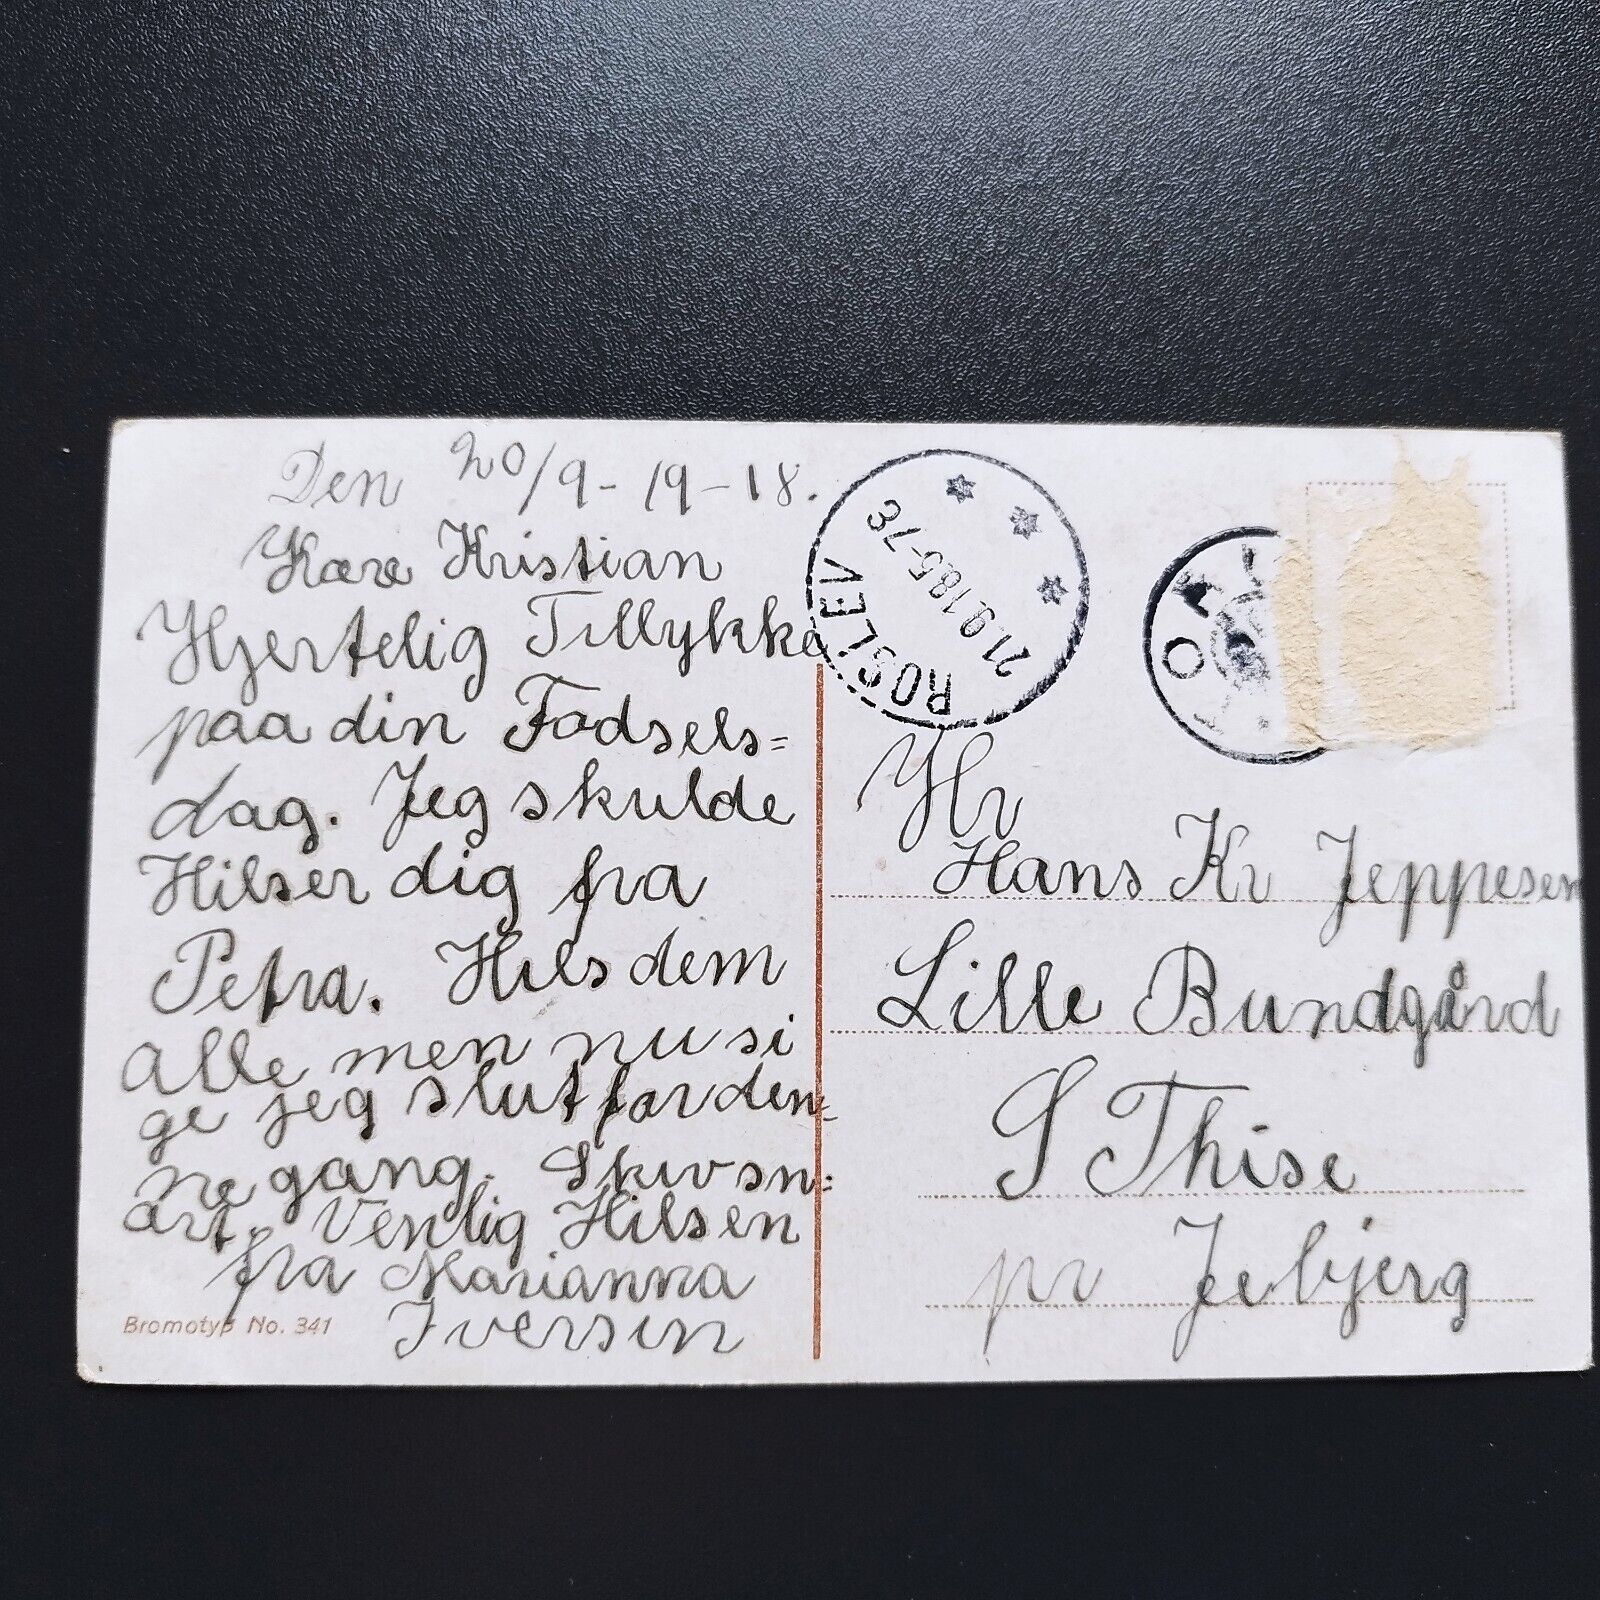 Den 20/9-19-18.
Kære Kristian
Hjertelig Tillykke
paa din Fødsels=
dag. Jeg skulde
Hilser dig fra
Petra. Hils dem
alle men nu si
ge jeg slut for den=
ne gang. Skiv sn=
art. Venlig Hilsen
fra Marianna
Iversen
Bromotyp No. 341
ROSLEV
21.9.18.5-7E
Hr
Hans Kr Jeppesen
Lille Bundgård
S Thise
pr Jebjerg